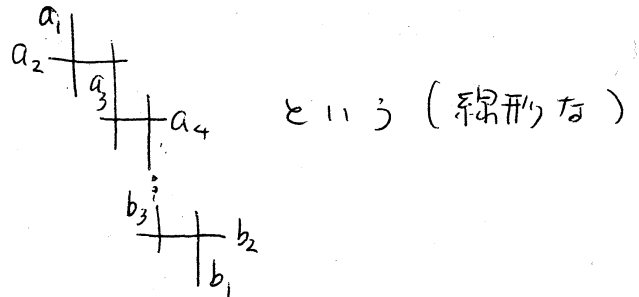 a₁
a₂
a₃
a₄ という(線形な)
⋮
b₃
b₂
b₁